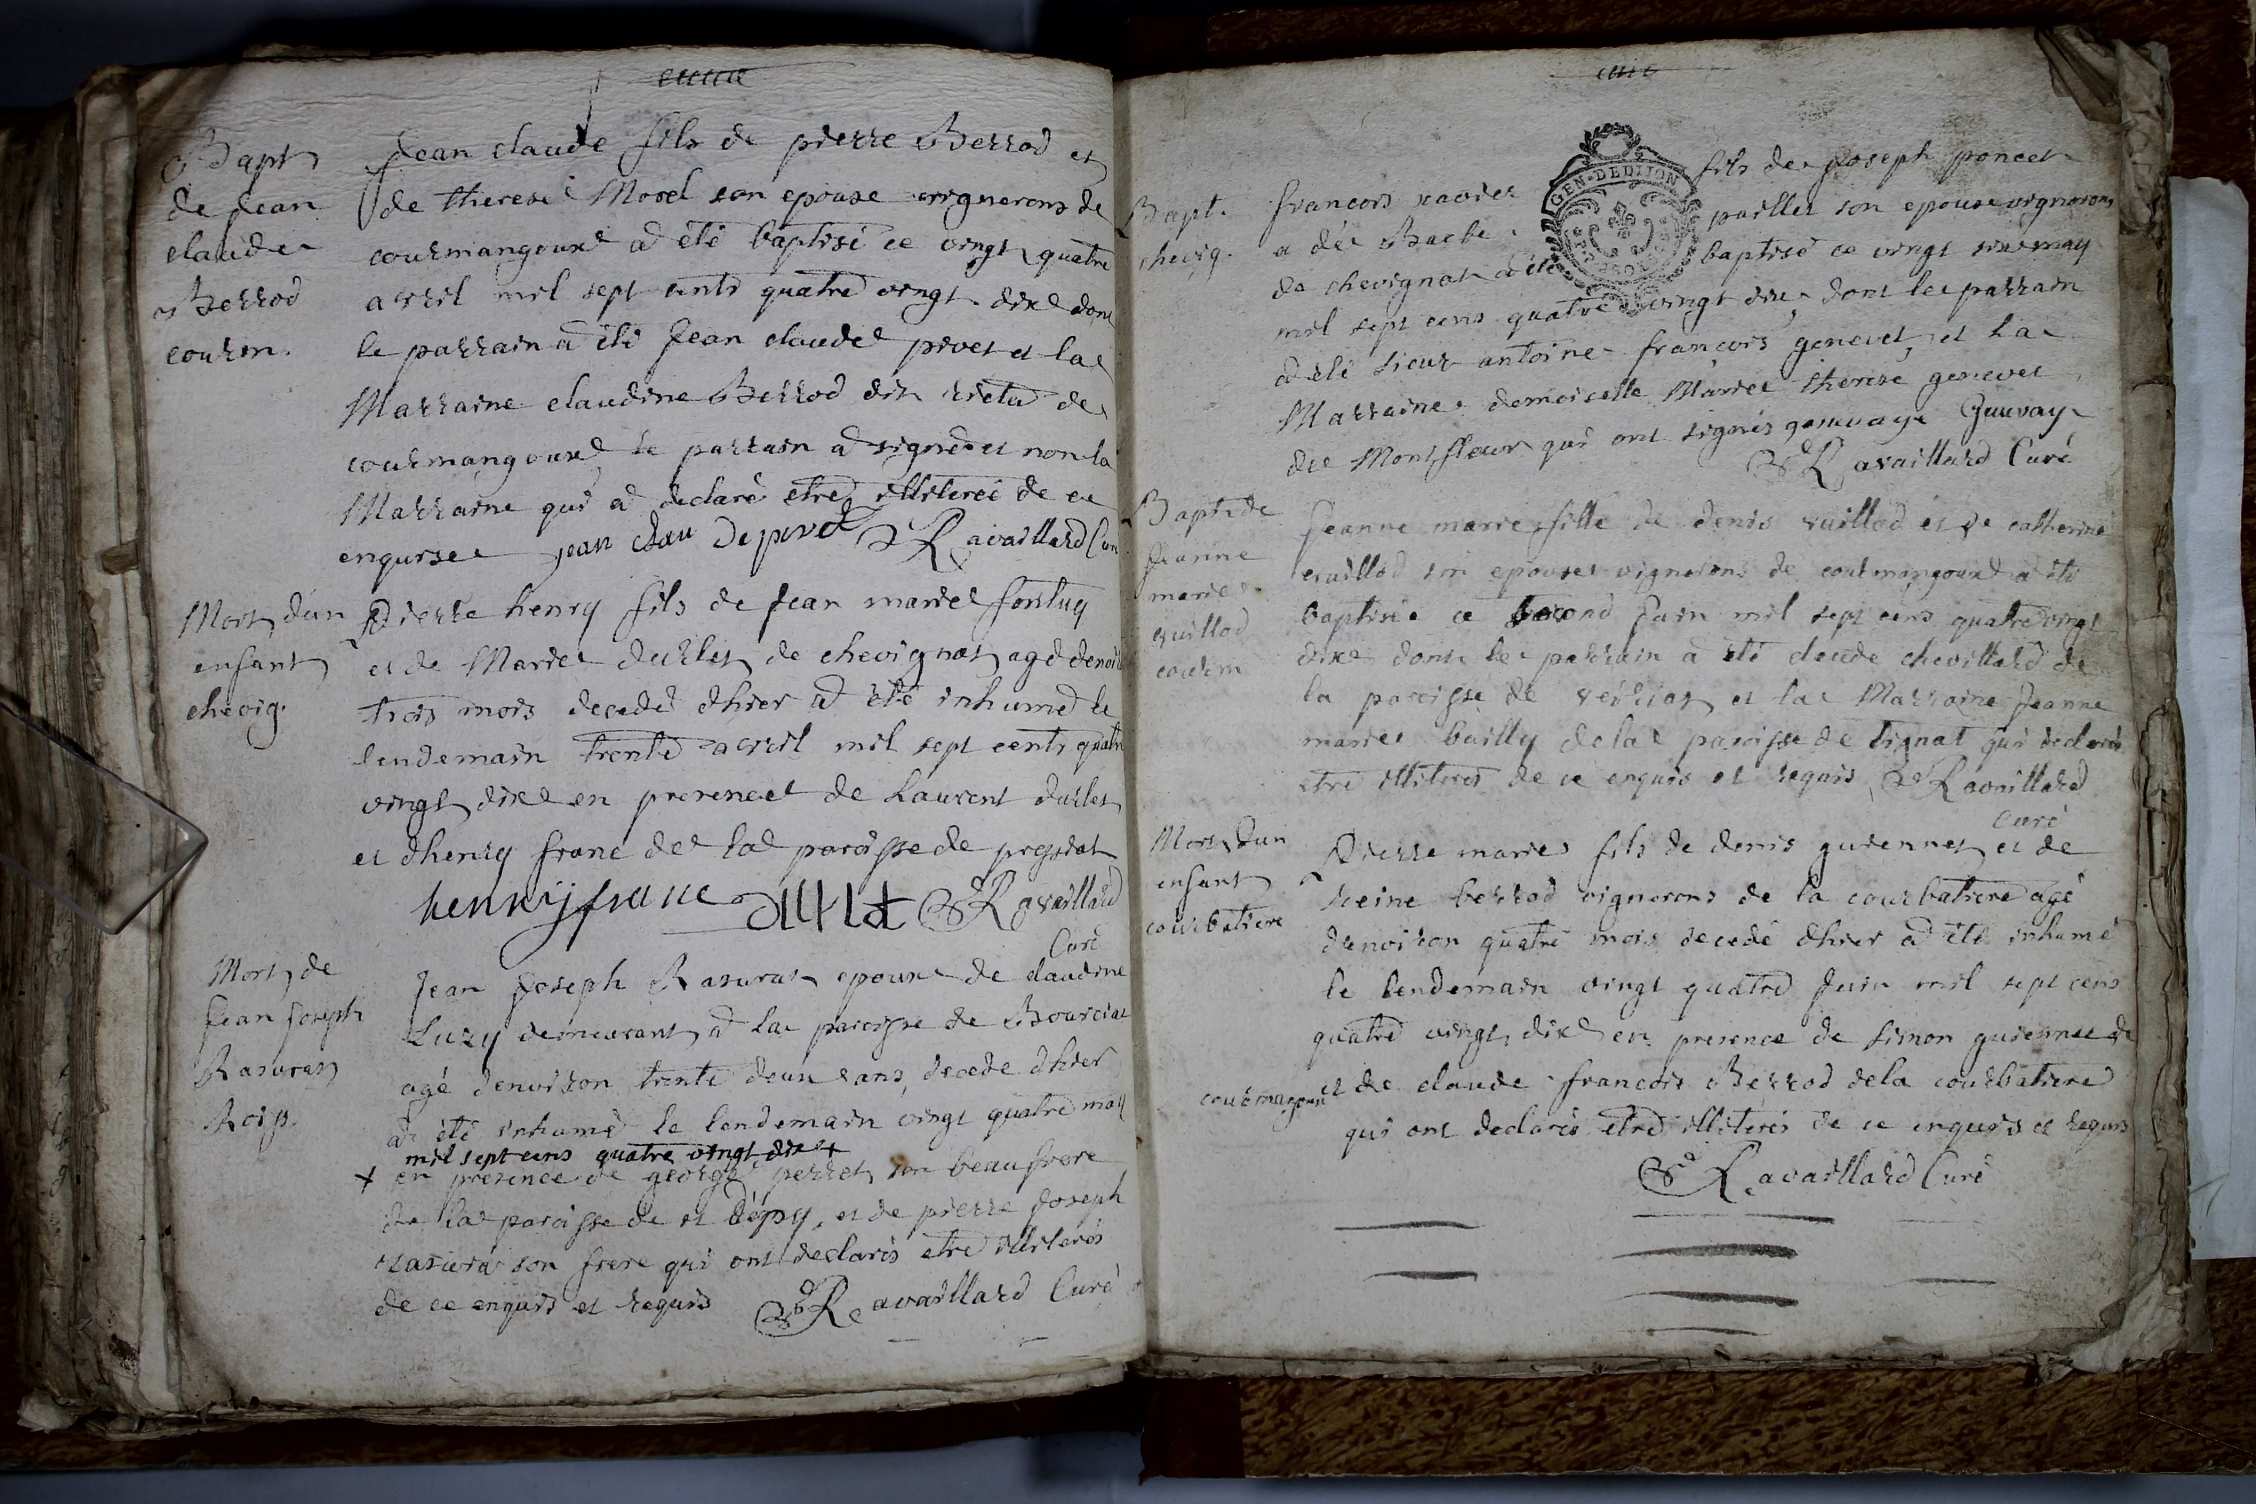 Bapt
de jean
claude
Berrod
courm.
jean claude fils de pierre Berrod et
de therese Morel son epouse vignerons de
courmangoux a été baptisé ce vingt quatre
avril mil sept cents quatre vingt dix dont
le parrain a été jean claude pivet et la
Marraine claudine Berrod dit de
courmangoux le parrain a signé et non la
Marraine qui a declaré etre illiterée de ce
enquise jean clau de pivet Ravaillard Curé
Mort d'un
enfant
chevig.
Pierre henry fils de jean marie
et de Marie durlet de chevignat agé denviron
trois mois decedé dhier a été inhumé le
lendemain trente avril mil sept cents quatre
vingt dix en presence de Laurent durlet
et dhenry franc de la paroisse de pressiat
henry franc durlet Ravaillard
Curé
Mort de
jean joseph
Rasurat
Roiss.
jean joseph Rasurat epoux de claudine
Luzy demeurant a la paroisse de Bourciat
agé denviron trente deux ans decede dhier
a été inhumé le lendemain vingt quatre may
mil sept cens quatre vingt dix +
+ en presence de george perret son beaufrere
de la paroisse de st et de pierre joseph
rasura son frere qui ont declarés etre illiterés
de ce enquis et requis Ravaillard Curé
Bapt.
chevig.
GEN. DE DIJON
francois xavier fils de joseph poncet
a de Barbe paillet son epouse vignerons
de chevignat a été baptisé ce vingt six may
mil sept cens quatre vingt dix, dont le parrain
a été sieur antoine françois genevet, et la
Marraine demoiselle Marie therese genevet
de Montfleur qui ont signés
Ravaillard Curé
Bapt de
jeanne
marie
vuillod
courm
jeanne marie fille de denis vuillod et de catherine
vuillod son epouse vignerons de courmangoux a été
baptisée ce second juin mil sept cens quatre vingt
dix dont le parrain a été claude chevillard de
la paroisse de verjon et la Marraine jeanne
marie bailly de la paroisse de qui declarés
etre illiterés de ce enquis et requis Ravaillard
Curé
Mort d'un
enfant
courbatiere
Pierre marie fils de denis guiennet et de
reine berrod vignerons de la courbatiere agé
denviron quatre mois decedé dhier a été inhumé
le lendemain vingt quatre juin mil sept cens
quatre vingt dix en presence de simon guiennet de
courmangoux et de claude francois Berrod de la courbatiere
qui ont declarés etre illiterés de ce enquis et requis
Ravaillard Curé